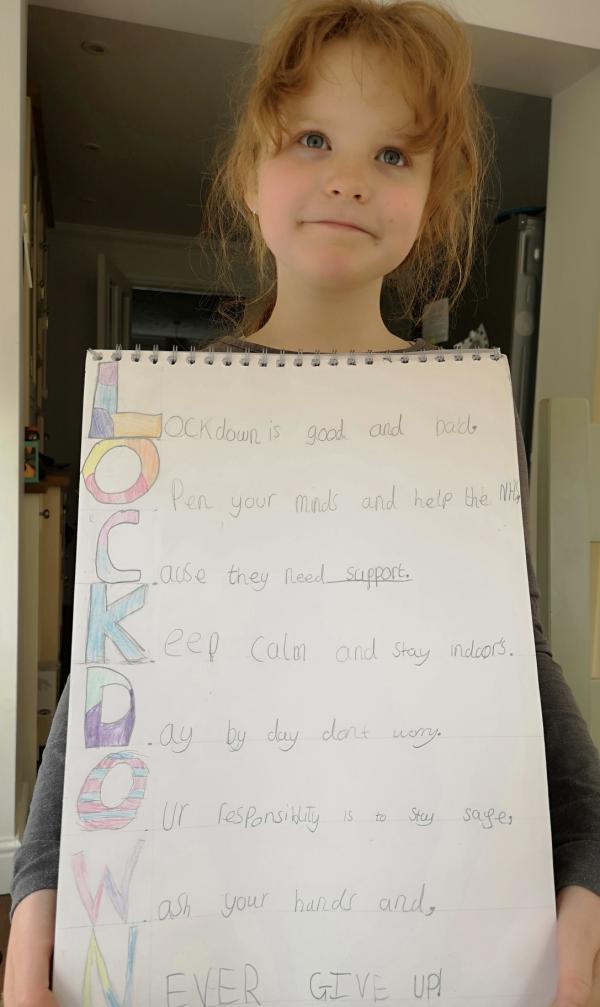 LOCKdown is good and bad.
O Pen your minds and help the NHS
C.ause they need support.
K.eep calm and stay indoors.
D.ay by day dont worry.
O.Ur responsiblity is to stay sage,
W.ash your hands and,
NEVER GIVE UP!